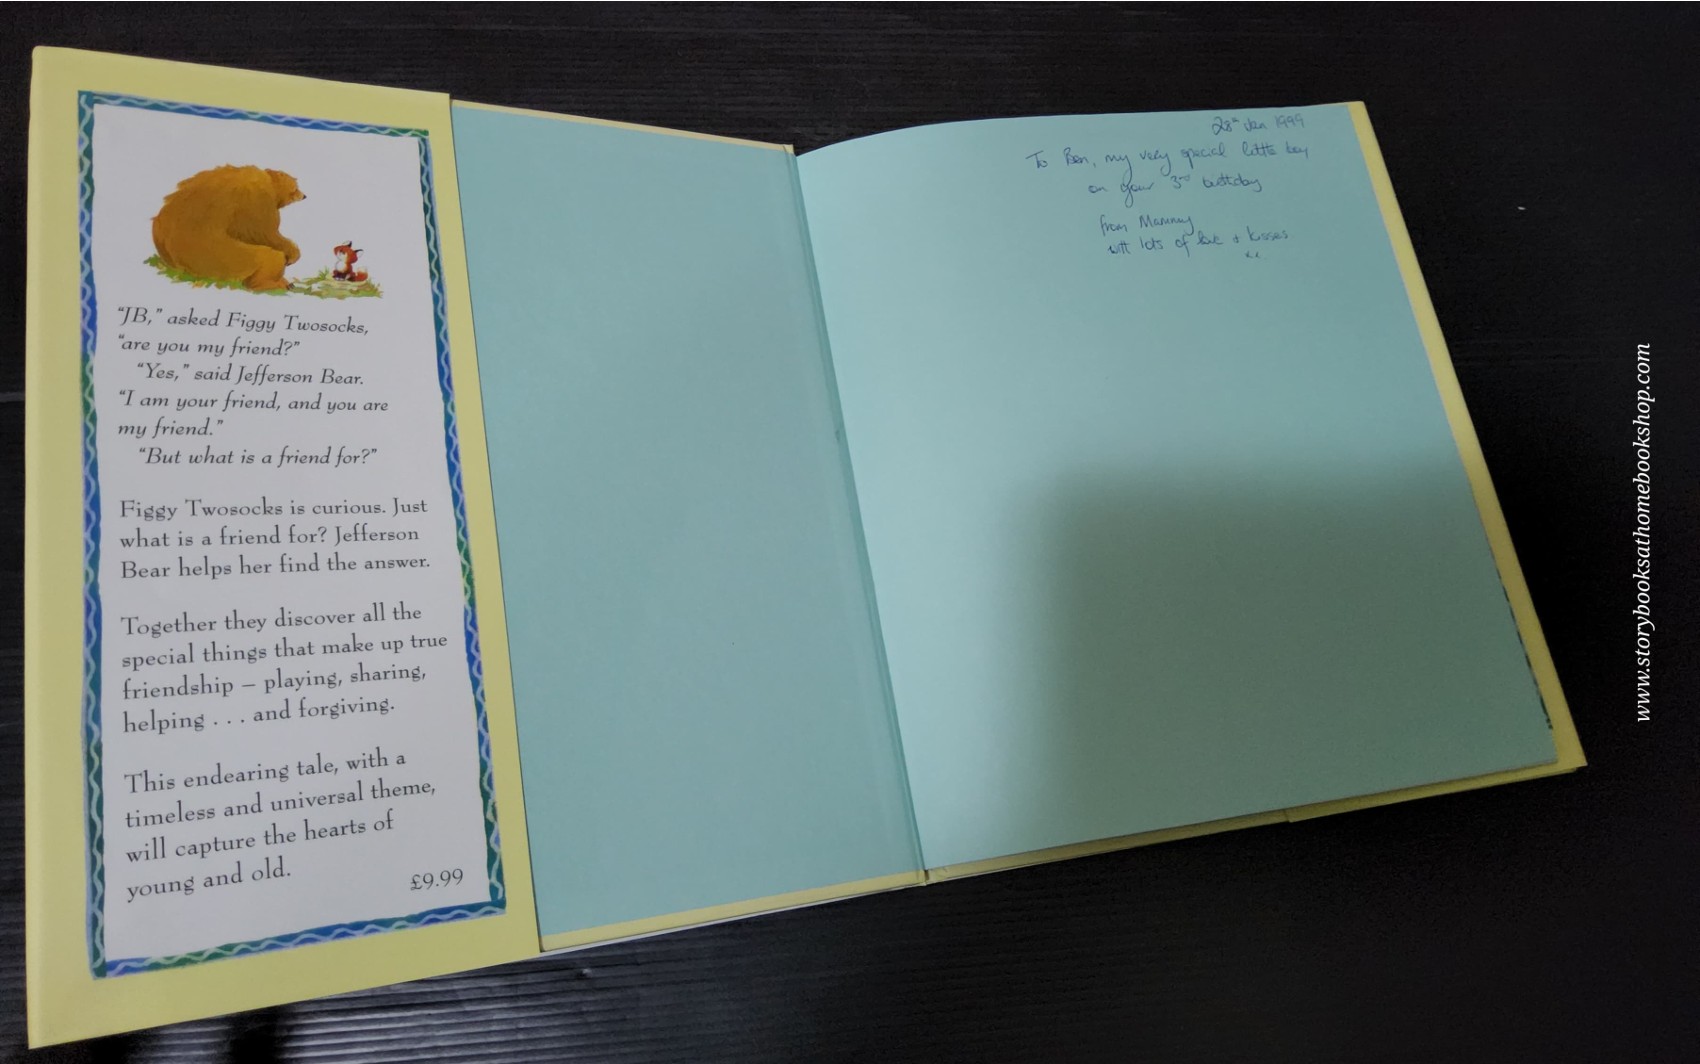 “JB,” asked Figgy Twosocks,
“are you my friend?”
“Yes,” said Jefferson Bear.
“I am your friend, and you are
my friend.”
“But what is a friend for?”
Figgy Twosocks is curious. Just
what is a friend for? Jefferson
Bear helps her find the answer.
Together they discover all the
special things that make up true
friendship – playing, sharing,
helping . . . and forgiving.
This endearing tale, with a
timeless and universal theme,
will capture the hearts of
young and old.
£9.99
28th Jan 1999
To Ben, my very special little boy
on your 3rd birthday
from Mammy
with lots of love + kisses
xx
www.storybooksathomebookshop.com